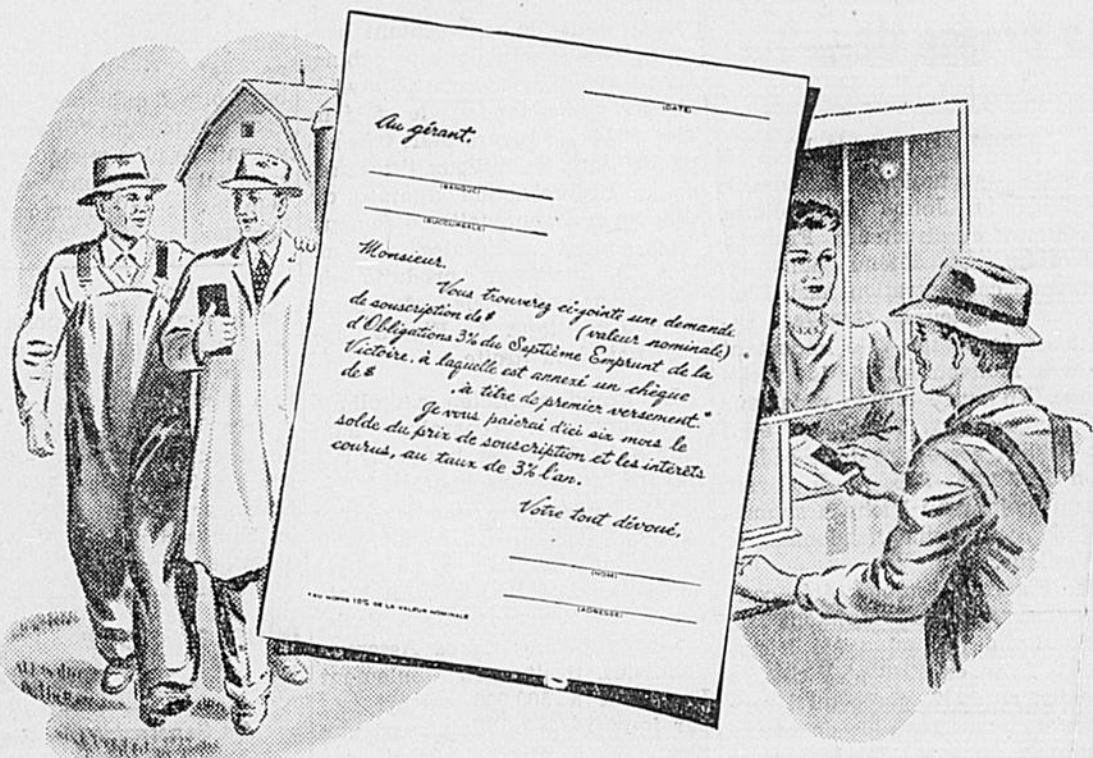 (DATE)
Au gérant,
(BANQUE)
(SUCCURSALE)
Monsieur,
Vous trouverez ci-jointe une demande
de souscription de $ (valeur nominale)
d'Obligations 3% du Septième Emprunt de la
Victoire, à laquelle est annexé un chèque
de $ à titre de premier versement.*
Je vous paierai d'ici six mois le
solde du prix de souscription et les intérêts
courus, au taux de 3% l'an.
Votre tout dévoué,
(NOM)
(ADRESSE)
*AU MOINS 10% DE LA VALEUR NOMINALE